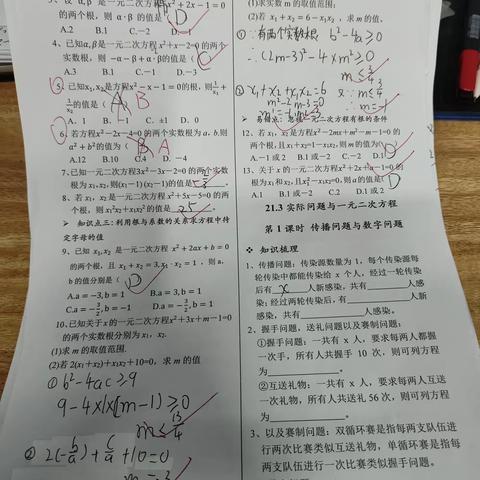 3、设 α,β 是一元二次方程 x²+2x−1=0
的两个根，则 α·β 的值是 D
A.2 B.1 C.−2 D.
4、已知α,β是一元二次方程x²+x−2=0的两个
实数根，则 −α−β+α·β的值是( C
A.3 B.1 C.−1 D.−3
5、已知x₁,x₂是方程x²−x−1=0的根，则1/x₁+
1/x₂的值是( A B
A. 1 B. C. ±1 D. 0
6、若方程x²−2x−4=0的两个实数根为 a, b,则
a²+b²的值为( B A
A.12 B.10 C.4 D. −4
7、已知一元二次方程x²−3x−2=0的两个实数
根为 x₁, x₂,则(x₁−1)(x₂−1)的值是
8、若x₁，x₂是一元二次方程x²+5x−5=0的两
个根，则 x₁²x₂+x₁x₂²的值是 25
➢ 知识点三:利用根与系数的关系求方程中待
定字母的值
9、已知 x₁,x₂ 是一元二次方程 x²+2ax+b=0
的两个根，且 x₁+x₂=3,x₁·x₂=1 ，则 a、
b 的值分别是( D
A.a=−3,b=1 B.a=3,b=1
C.a=−3/2,b=−1 D.a=−3/2,b=1
10.已知关于x的一元二次方程x²+3x+m−1=0
的两个实数根分别为 x₁，x₂.
(1)求 m 的取值范围.
(2)若 2(x₁+x₂)+x₁x₂+10=0，求 m 的值
① b²−4ac≥9
9−4×1×(m−1)≥0
m≤13/4
② 2(−b/a)+c/a+10=0
m=−3
(1)求实数 m 的取值范围；
(2)若 x₁+x₂=6−x₁x₂ ，求 m 的值。
① ∵有两个实数根 b²−4ac≥0
∴(2m−3)²−4×m²≥0
m≤3/4
② x₁+x₂+x₁x₂=6
m²−2m−3=0
∴m=−1
➢ 易错点：忽视一元二次方程有根的条件
12、若x₁，x₂是方程x²−2mx+m²−m−1=0 的
两个根,且x₁+x₂=1−x₁x₂，则 m 的值为( D
A.−1 或 2 B.1 或−2 C.−2 D.1
13、关于 x 的一元二次方程x²+2x+a−1=0的
根为x₁和x₂，且x₁²−x₁x₂=0，则a的值是( D
A.1 B.1 或−2 C.2 D.1 或 2
21.3 实际问题与一元二次方程
第 1 课时 传播问题与数字问题
❖ 知识梳理
1、传播问题；传染源数量为 1，每个传染源每
轮传染中都能传染给 x 个人，经过一轮传染
后有 x 人新感染，共有 人感
染；经过两轮传染后，有 人新
感染，共有 人感染。
2、握手问题，送礼问题以及赛制问题；
①握手问题；一共有 x 人，要求每两人都握
一次手，所有人共握手 10 次，则可列方程
为 。
②互送礼物；一共有 x 人，要求每两人互送
一次礼物，所有人共送礼 56 次，则可列方程
为 。
3、以及赛制问题；双循环赛是指每两支队伍进
行两次比赛类似互送礼物，单循环赛是指每
两支队伍进行一次比赛类似握手问题。